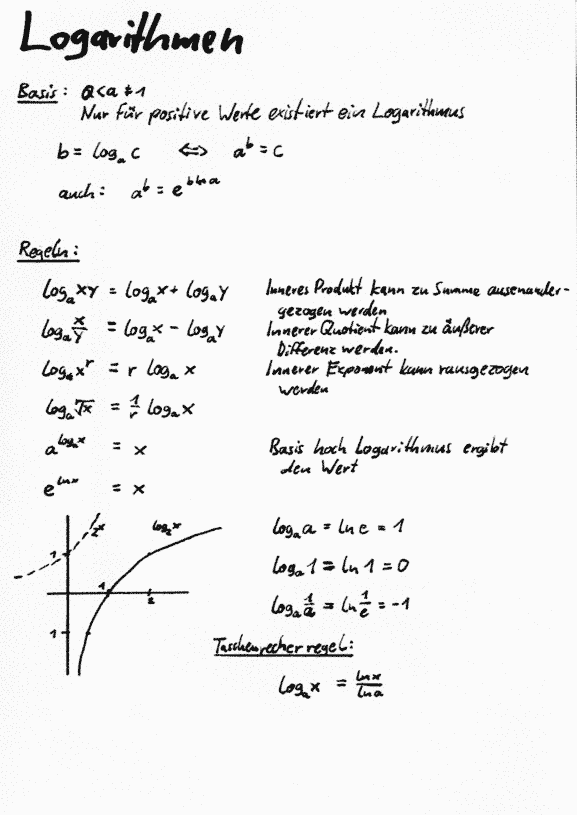 Logarithmen
Basis: 0<a≠1
Nur für positive Werte existiert ein Logarithmus
b = logₐ c ⟺ aᵇ = c
auch: aᵇ = e^(b ln a)
Regeln:
logₐ xy = logₐ x + logₐ y Inneres Produkt kann zu Summe ausenander-
gezogen werden
logₐ x/y = logₐ x - logₐ y Innerer Quotient kann zu äußerer
Differenz werden.
logₐ xʳ = r logₐ x Innerer Exponent kann rausgezogen
werden
logₐ ʳ√x = 1/r logₐ x
a^(logₐ x) = x Basis hoch Logarithmus ergibt
den Wert
e^(ln x) = x
2ˣ log₂ x
1
1 2
1
logₐ a = ln e = 1
logₐ 1 = ln 1 = 0
logₐ 1/a = ln 1/e = -1
Taschenrecherregel:
logₐ x = ln x/ln a